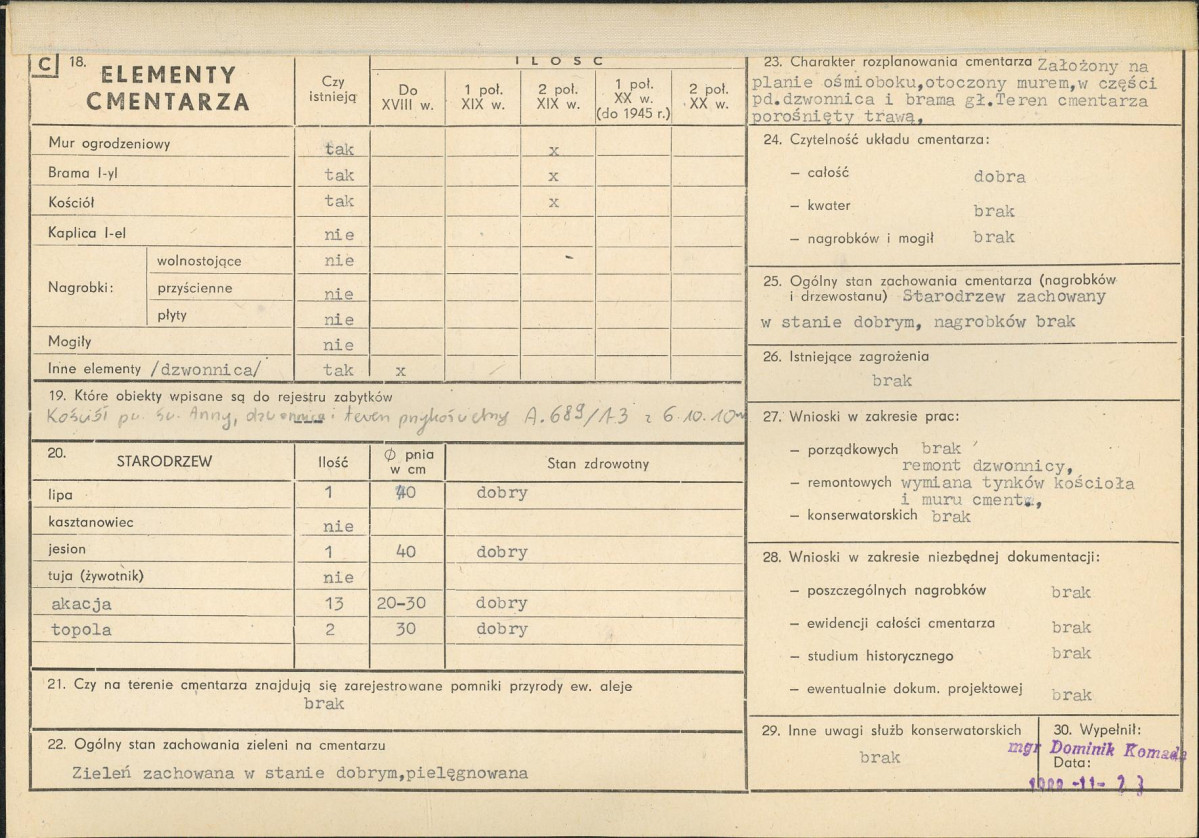 C 18. ELEMENTY CMENTARZA
Czy istnieją
ILOŚĆ
Do XVIII w.
1 poł. XIX w.
2 poł. XIX w.
1 poł. XX w. (do 1945 r.)
2 poł. XX w.
Mur ogrodzeniowy tak x
Brama I-yl tak x
Kościół tak x
Kaplica I-el nie
Nagrobki: wolnostojące nie
przyścienne nie
płyty nie
Mogiły nie
Inne elementy /dzwonnica/ tak x
19. Które obiekty wpisane są do rejestru zabytków
Kościół pw. św. Anny, dzwonnica i teren przykościelny A.689/A3 z 6.10.10
20. STARODRZEW Ilość Ø pnia w cm Stan zdrowotny
lipa 1 40 dobry
kasztanowiec nie
jesion 1 40 dobry
tuja (żywotnik) nie
akacja 13 20-30 dobry
topola 2 30 dobry
21. Czy na terenie cmentarza znajdują się zarejestrowane pomniki przyrody ew. aleje
brak
22. Ogólny stan zachowania zieleni na cmentarzu
Zieleń zachowana w stanie dobrym,pielęgnowana
23. Charakter rozplanowania cmentarza Założony na
planie ośmioboku,otoczony murem,w części
pd.dzwonnica i brama gł.Teren cmentarza
porośnięty trawą,
24. Czytelność układu cmentarza:
– całość dobra
– kwater brak
– nagrobków i mogił brak
25. Ogólny stan zachowania cmentarza (nagrobków
i drzewostanu) Starodrzew zachowany
w stanie dobrym, nagrobków brak
26. Istniejące zagrożenia
brak
27. Wnioski w zakresie prac:
– porządkowych brak
remont dzwonnicy,
– remontowych wymiana tynków kościoła
i muru cment.,
– konserwatorskich brak
28. Wnioski w zakresie niezbędnej dokumentacji:
– poszczególnych nagrobków brak
– ewidencji całości cmentarza brak
– studium historycznego brak
– ewentualnie dokum. projektowej brak
29. Inne uwagi służb konserwatorskich
brak
30. Wypełnił:
mgr Dominik Komada
Data: